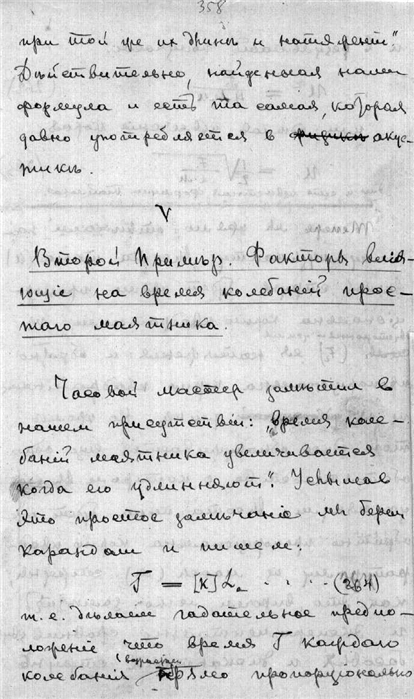 358
при той же их длинѣ и натяженiи"
Дѣйствительно, найденная нами
формула и есть та самая, которая
давно употребляется в физикѣ акус-
тикѣ.
V
Второй Примѣр. Факторы влiя-
ющiе на время колебанiй прос-
того маятника.
Часовой мастер замѣтил в
нашем присутствiи: „время коле-
банiй маятника увеличивается
когда его удлинняют". Услышав
это простое замѣчанiе мы берем
карандаш и пишем:
T = [K] L. . . . . (264)
т. е. дѣлаем гадательное предпо-
ложенiе что время T каждаго
колебанiя прямо пропорцiонально